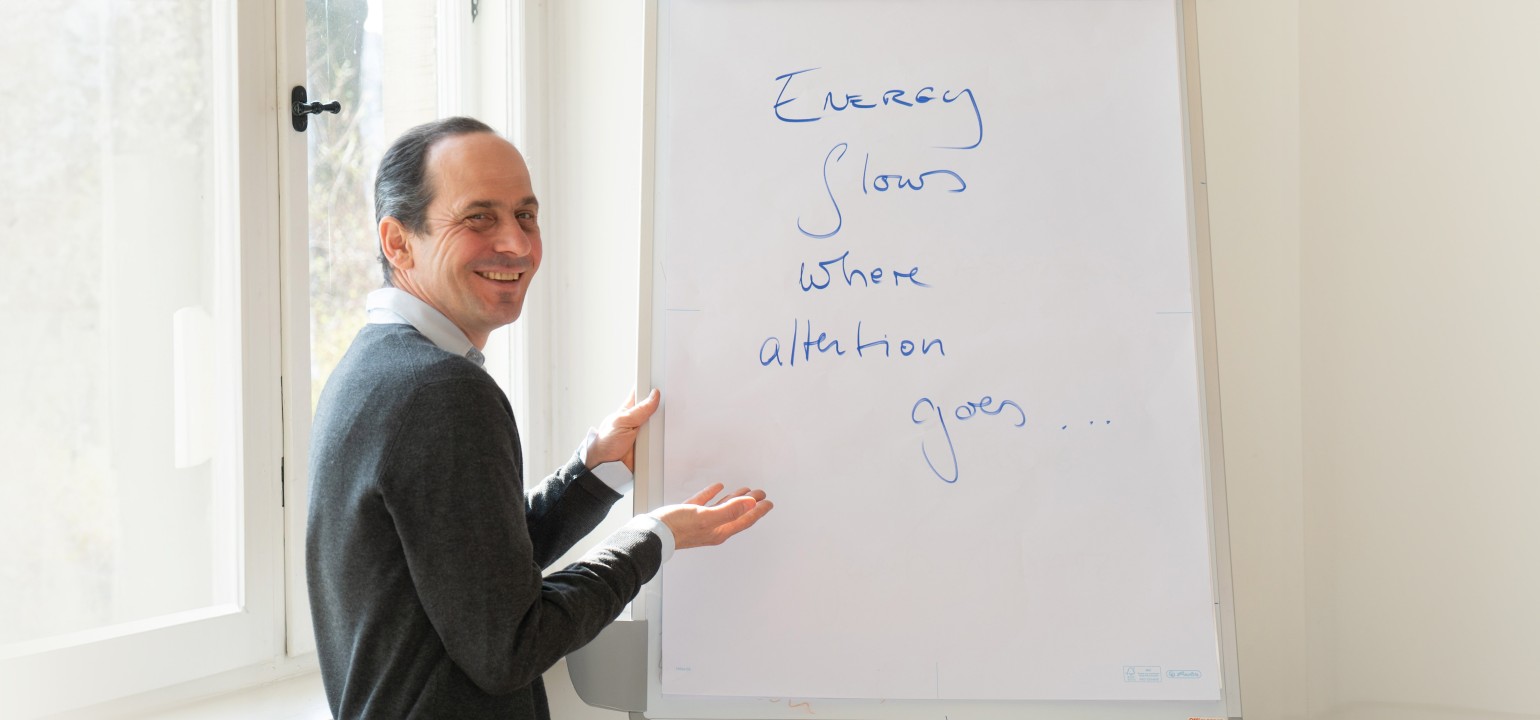 Energy
flows
where
attention
goes ...